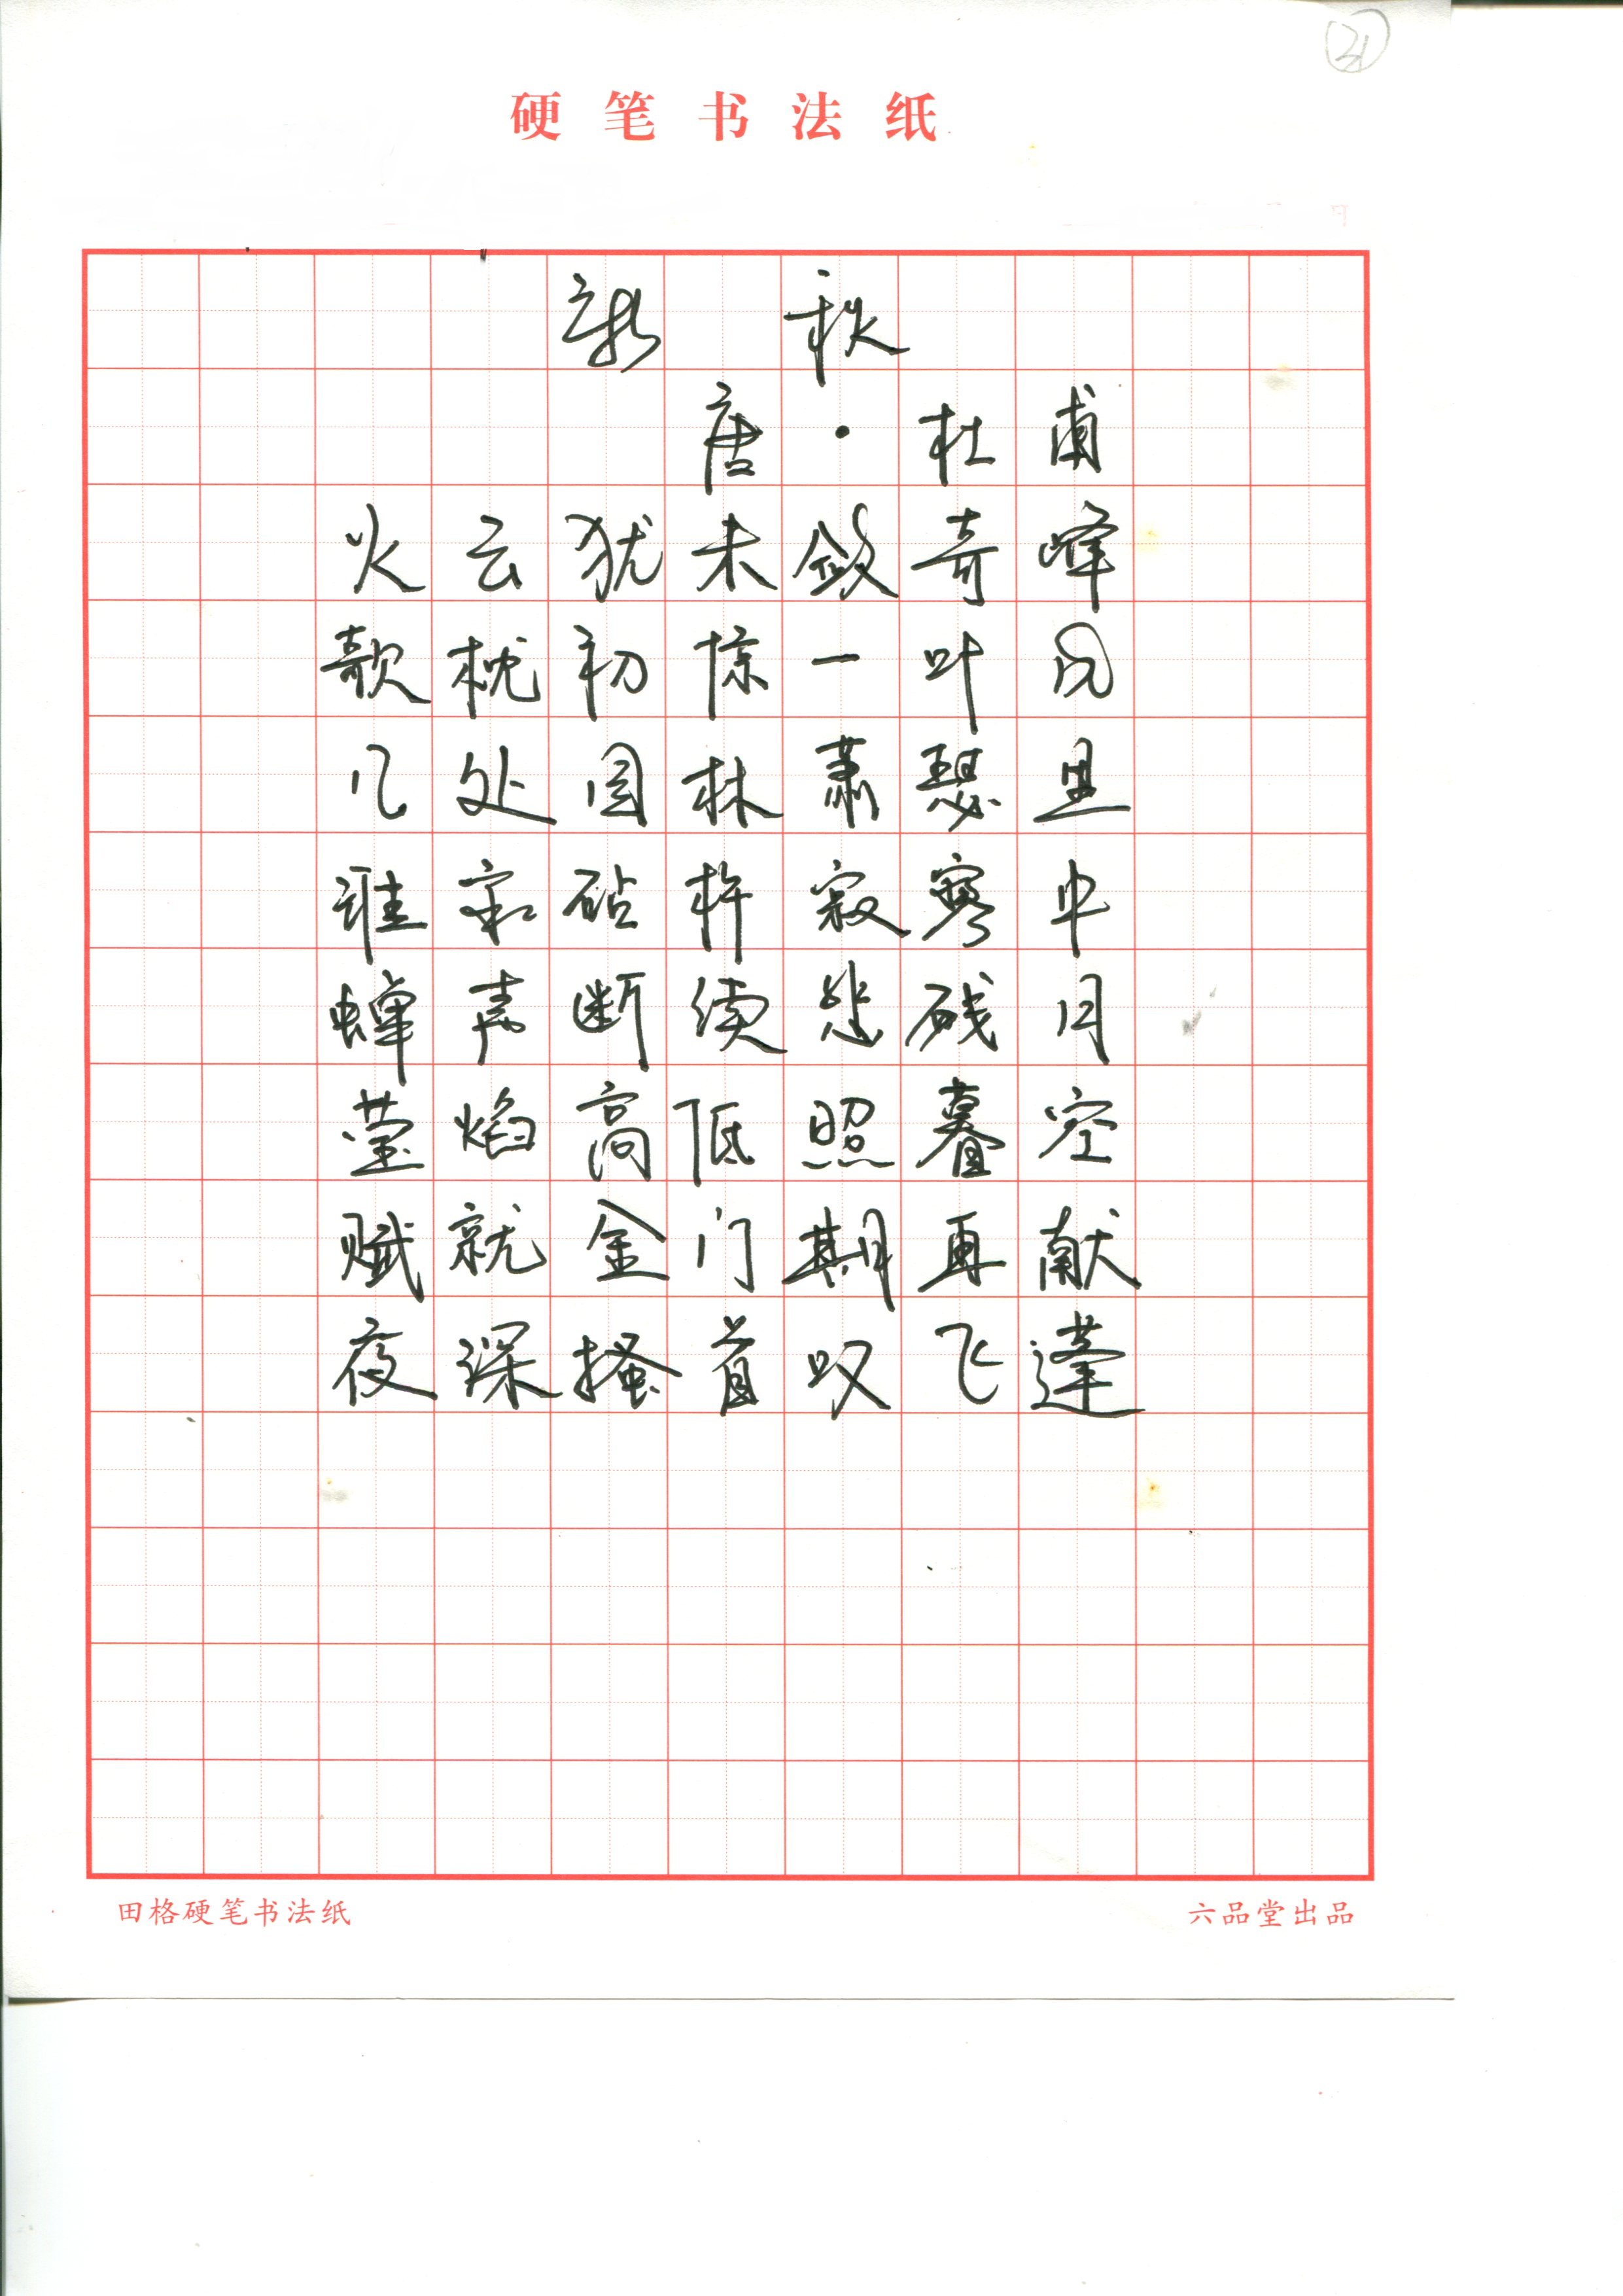 硬笔书法纸
新秋
唐·杜甫
火云犹未敛奇峰
欹枕初惊一叶风
几处园林萧瑟里
谁家砧杵寂寥中
蝉声断续悲残月
萤焰高低照暮空
赋就金门期再献
夜深搔首叹飞蓬
田格硬笔书法纸
六品堂出品